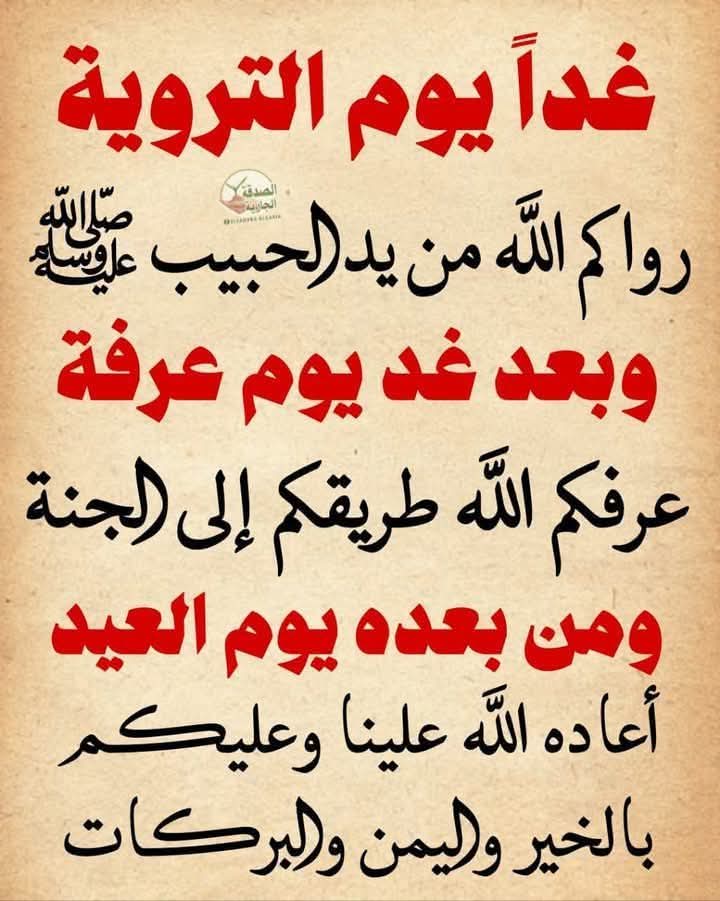 غداً يوم التروية
الصدقة
الجارية
رواكم الله من يد الحبيب ﷺ
وبعد غد يوم عرفة
عرفكم الله طريقكم إلى الجنة
ومن بعده يوم العيد
أعاده الله علينا وعليكم
بالخير واليمن والبركات